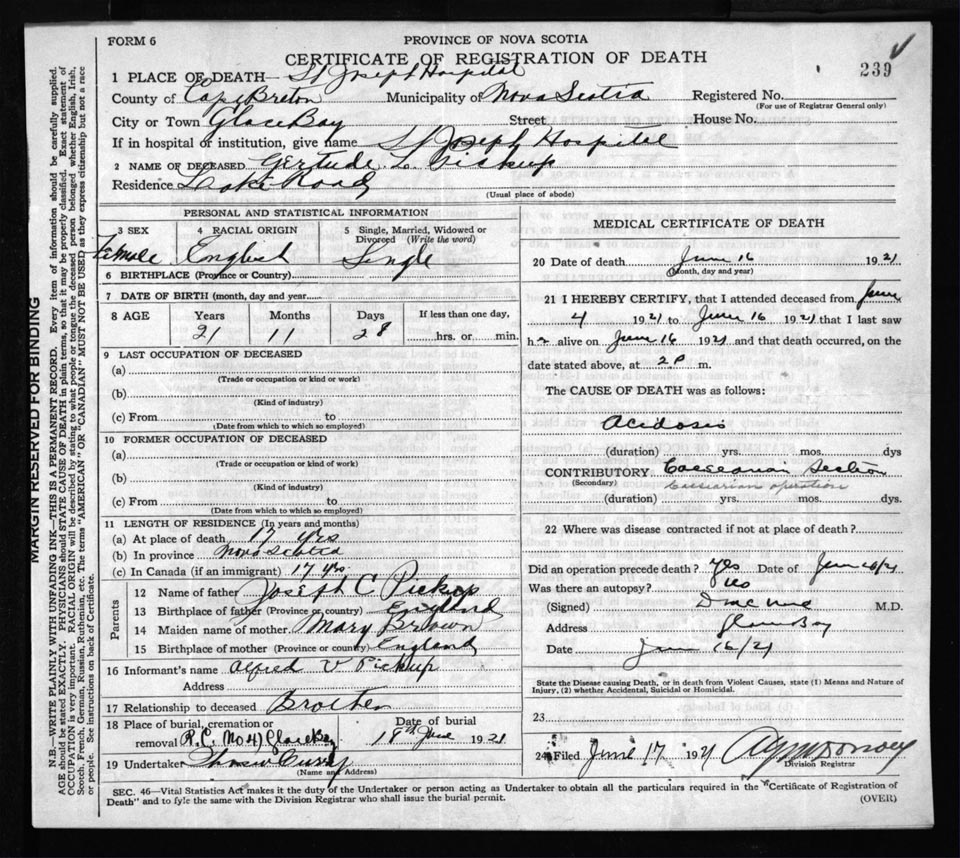 FORM 6
PROVINCE OF NOVA SCOTIA
CERTIFICATE OF REGISTRATION OF DEATH
239
1 PLACE OF DEATH—St Joseph Hospital
County of Cape Breton Municipality of Nova Scotia Registered No.
(For use of Registrar General only)
City or Town Glace Bay Street House No.
If in hospital or institution, give name St Joseph Hospital
2 NAME OF DECEASED Gertude L.
Residence Road
(Usual place of abode)
PERSONAL AND STATISTICAL INFORMATION
3 SEX Female
4 RACIAL ORIGIN English
5 Single, Married, Widowed or Divorced (Write the word) Single
6 BIRTHPLACE (Province or Country)
7 DATE OF BIRTH (month, day and year)
8 AGE Years Months Days If less than one day,
21 11 28 hrs. or min.
9 LAST OCCUPATION OF DECEASED
(a)
(Trade or occupation or kind or work)
(b)
(Kind of industry)
(c) From to
(Date from which to which so employed)
10 FORMER OCCUPATION OF DECEASED
(a)
(Trade or occupation or kind of work)
(b)
(Kind of industry)
(c) From to
(Date from which to which so employed)
11 LENGTH OF RESIDENCE (In years and months)
(a) At place of death 17 yrs
(b) In province Nova Scotia
(c) In Canada (if an immigrant) 17 yrs.
Parents
12 Name of father Joseph C Pickup
13 Birthplace of father (Province or country) England
14 Maiden name of mother Mary Brown
15 Birthplace of mother (Province or country) England
16 Informant's name Alfred V Pickup
Address
17 Relationship to deceased Brother
18 Place of burial, cremation or Date of burial
removal R.C. Glace Bay 18th June 1921
19 Undertaker
(Name and Address)
MEDICAL CERTIFICATE OF DEATH
20 Date of death June 16 1921
(Month, day and year)
21 I HEREBY CERTIFY, that I attended deceased from June
4 1921 to June 16 1921 that I last saw
h er alive on June 16 1921 and that death occurred, on the
date stated above, at 2 P m.
The CAUSE OF DEATH was as follows:
Acidosis
(duration) yrs. mos. dys
CONTRIBUTORY Caesearian Section
(Secondary) Caesearian operation
(duration) yrs. mos. dys.
22 Where was disease contracted if not at place of death?
Did an operation precede death? Yes Date of June 16/21
Was there an autopsy? Yes
(Signed) M.D.
Address Glace Bay
Date June 16/21
State the Disease causing Death, or in death from Violent Causes, state (1) Means and Nature of
Injury, (2) whether Accidental, Suicidal or Homicidal.
23
24 Filed June 17 1921
Division Registrar
SEC. 46—Vital Statistics Act makes it the duty of the Undertaker or person acting as Undertaker to obtain all the particulars required in the "Certificate of Registration of
Death" and to fyle the same with the Division Registrar who shall issue the burial permit.
(OVER)
MARGIN RESERVED FOR BINDING
N.B.—WRITE PLAINLY WITH UNFADING INK—THIS IS A PERMANENT RECORD. Every item of information should be carefully supplied.
AGE should be stated EXACTLY. PHYSICIANS should STATE CAUSE OF DEATH in plain terms, so that it may be properly classified. Exact statement of
OCCUPATION is very important. RACIAL ORIGIN will be described by stating to what people or tongue the deceased person belonged whether English, Irish,
Scotch, French, German, Russian, Ruthenian, etc. The terms "AMERICAN" OR "CANADIAN" MUST NOT BE USED as they express citizenship but not a race
or people. See instructions on back of Certificate.